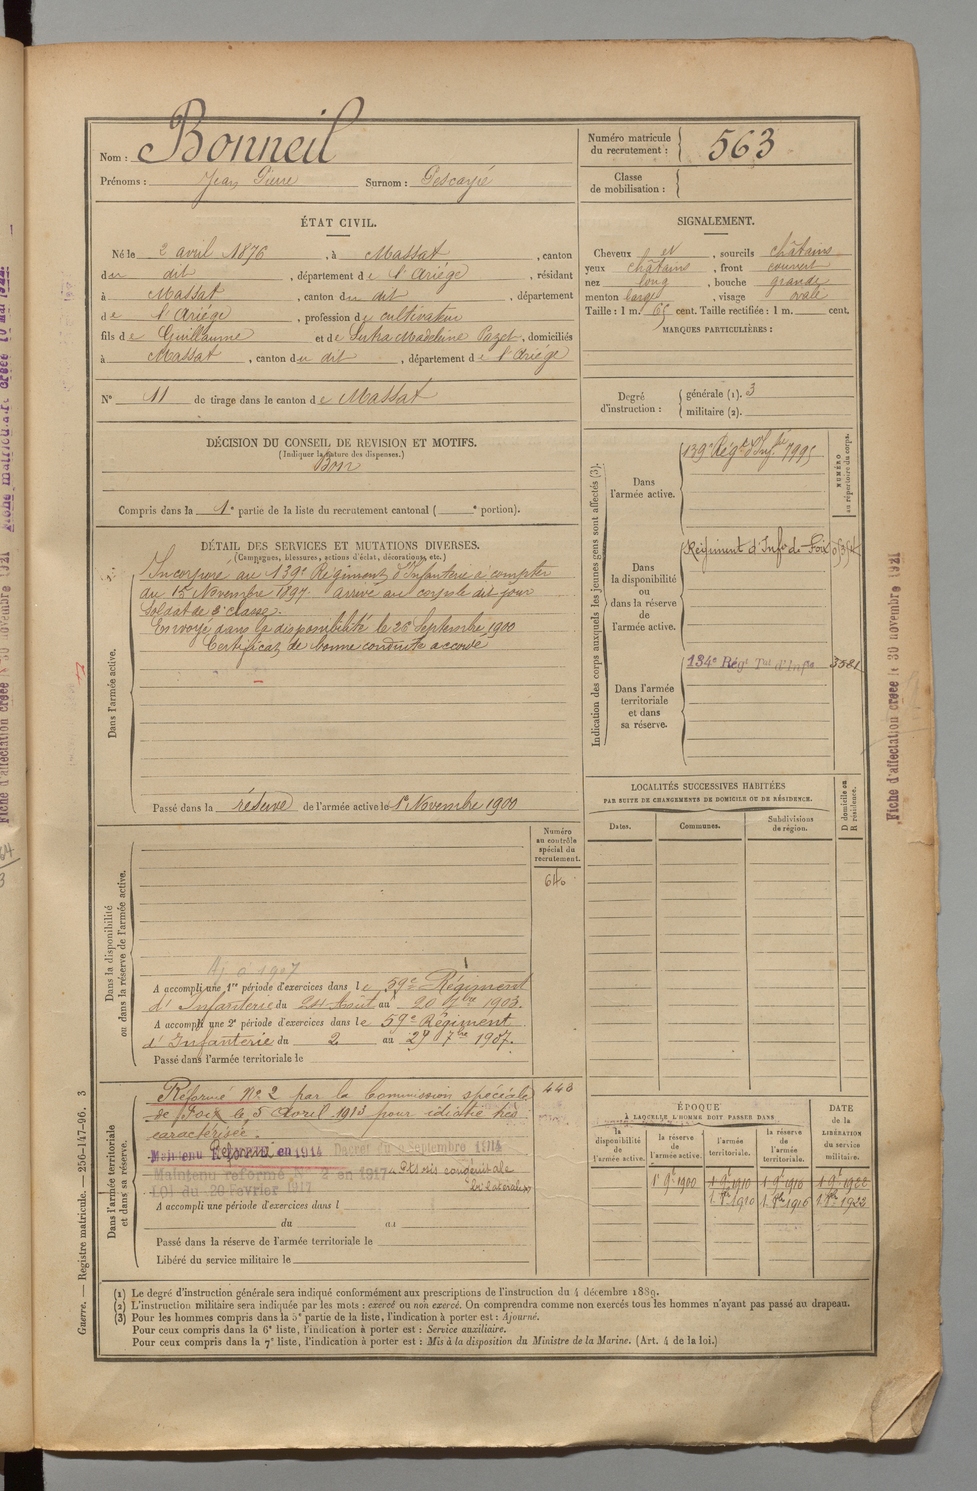 Nom : Bonneil
Prénoms : Jean Pierre Surnom :
Numéro matricule du recrutement : 563
Classe de mobilisation :
ÉTAT CIVIL.
Né le 2 avril 1876, à Massat, canton
du dit, département de l'Ariège, résidant
à Massat, canton du dit, département
de l'Ariège, profession de cultivateur
fils de Guillaume et de Madeleine Pazet, domiciliés
à Massat, canton du dit, département de l'Ariège
N° 11 de tirage dans le canton de Massat
SIGNALEMENT.
Cheveux et, sourcils châtains
yeux châtains, front couvert
nez long, bouche grande
menton large, visage ovale
Taille : 1 m. 65 cent. Taille rectifiée : 1 m. cent.
MARQUES PARTICULIÈRES :
Degré d'instruction : générale (1). 3
militaire (2).
DÉCISION DU CONSEIL DE REVISION ET MOTIFS.
(Indiquer la nature des dispenses.)
Bon
Compris dans la 1e partie de la liste du recrutement cantonal ( e portion).
DÉTAIL DES SERVICES ET MUTATIONS DIVERSES.
(Campagnes, blessures, actions d'éclat, décorations, etc.)
Dans l'armée active.
Incorporé au 139e Régiment d'Infanterie à compter
du 15 Novembre 1897. arrivé au corps le dit jour
Soldat de 2e classe.
Envoyé dans la disponibilité le 26 Septembre 1900
Certificat de bonne conduite accordé
Passé dans la réserve de l'armée active le 1er Novembre 1900
Indication des corps auxquels les jeunes gens sont affectés (3).
NUMÉRO au répertoire du corps.
Dans l'armée active.
139e Régt d'Infrie 7995
Dans la disponibilité ou dans la réserve de l'armée active.
Régiment d'Infrie de Foix
Dans l'armée territoriale et dans sa réserve.
134e Régt Tal d'Infie 3581
LOCALITÉS SUCCESSIVES HABITÉES
PAR SUITE DE CHANGEMENTS DE DOMICILE OU DE RÉSIDENCE.
Dates. Communes. Subdivisions de région. D domicile ou R résidence.
Dans la disponibilité ou dans la réserve de l'armée active.
Numéro au contrôle spécial du recrutement.
646
A accompli une 1re période d'exercices dans le 59e Régiment
d'Infanterie du 24 Août au 20 7bre 1903.
A accompli une 2e période d'exercices dans le 59e Régiment
d'Infanterie du 2 au 29 7bre 1907.
Passé dans l'armée territoriale le
Dans l'armée territoriale et dans sa réserve.
443
Réformé N° 2 par la Commission spéciale
de Foix le 5 Avril 1913 pour idiotie très
caractérisée.
Maintenu Réformé en 1914 Décret du 9 septembre 1914
Maintenu réformé N° 2 en 1917
LOI du 20 Février 1917
Ptosis congénitale
bilatérale
A accompli une période d'exercices dans l
du au
Passé dans la réserve de l'armée territoriale le
Libéré du service militaire le
ÉPOQUE
À LAQUELLE L'HOMME DOIT PASSER DANS
la disponibilité de l'armée active. la réserve de l'armée active. l'armée territoriale. la réserve de l'armée territoriale.
DATE de la LIBÉRATION du service militaire.
1er 9e 1900 1 9e 1910 1 9e 1916 1 9e 1922
1910 1916 1922
(1) Le degré d'instruction générale sera indiqué conformément aux prescriptions de l'instruction du 4 décembre 1889.
(2) L'instruction militaire sera indiquée par les mots : exercé ou non exercé. On comprendra comme non exercés tous les hommes n'ayant pas passé au drapeau.
(3) Pour les hommes compris dans la 5e partie de la liste, l'indication à porter est : Ajourné.
Pour ceux compris dans la 6e liste, l'indication à porter est : Service auxiliaire.
Pour ceux compris dans la 7e liste, l'indication à porter est : Mis à la disposition du Ministre de la Marine. (Art. 4 de la loi.)
Guerre. — Registre matricule. — 256-147-96. 3
Fiche d'affectation créée le 30 novembre 1921
Fiche d'affectation créée le 30 novembre 1921 Fiche matricule créée 10 mai 1922.